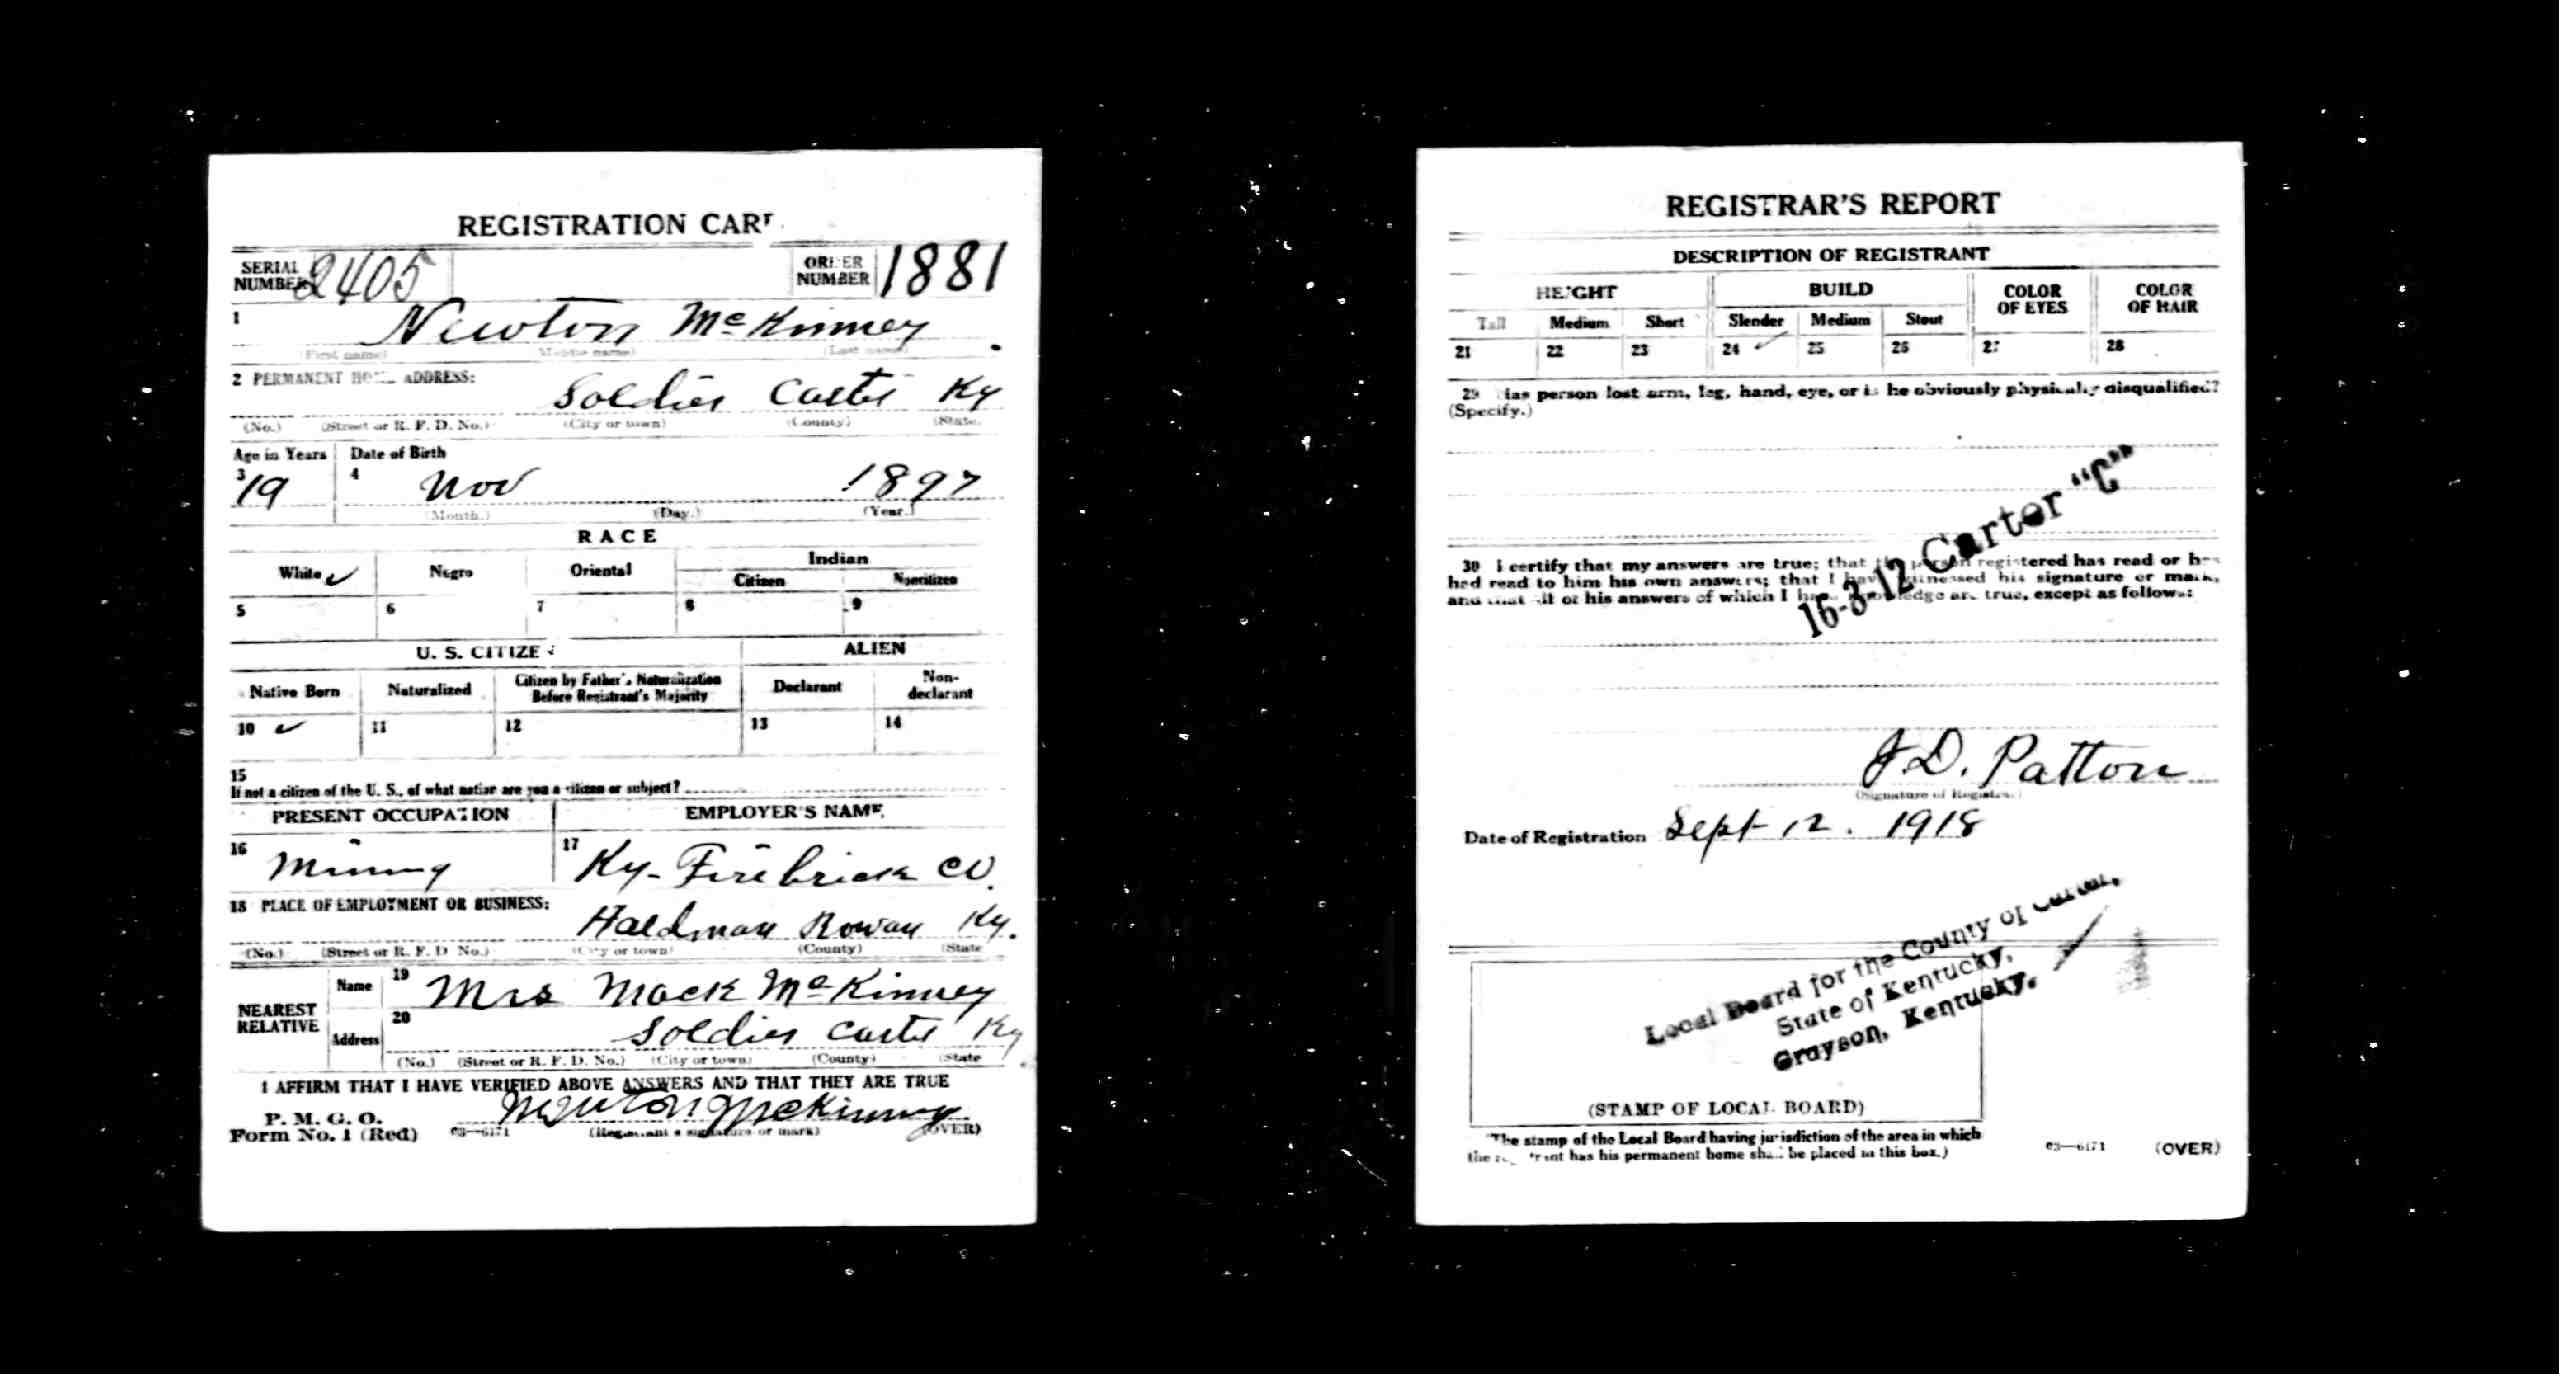 REGISTRATION CAR
SERIAL NUMBER 2405 ORDER NUMBER 1881
1 Newton McKinney
(First name) (Middle name) (Last name)
2 PERMANENT HOME ADDRESS: Soldier Carter Ky
(No.) (Street or R. F. D. No.) (City or town) (County) (State)
Age in Years Date of Birth
3 19 4 Nov 1897
(Month.) (Day.) (Year.)
RACE
White ✓ Negro Oriental Indian
Citizen Noncitizen
5 6 7 8 9
U. S. CITIZEN ALIEN
Native Born Naturalized Citizen by Father's Naturalization Before Registrant's Majority Declarant Non-declarant
10 ✓ 11 12 13 14
15
If not a citizen of the U. S., of what nation are you a citizen or subject?
PRESENT OCCUPATION EMPLOYER'S NAME
16 Mining 17 Ky. Firebrick Co.
18 PLACE OF EMPLOYMENT OR BUSINESS:
Haldman Rowan Ky.
(No.) (Street or R. F. D. No.) (City or town) (County) (State
NEAREST RELATIVE Name 19 Mrs Mack McKinney
Address 20 Soldier Carter Ky
(No.) (Street or R. F. D. No.) (City or town) (County) (State
I AFFIRM THAT I HAVE VERIFIED ABOVE ANSWERS AND THAT THEY ARE TRUE
P. M. G. O.
Form No. 1 (Red) 03—6171 Newton McKinney
(Registrant's signature or mark) (OVER)
REGISTRAR'S REPORT
DESCRIPTION OF REGISTRANT
HEIGHT BUILD COLOR OF EYES COLOR OF HAIR
Tall Medium Short Slender Medium Stout
21 22 23 24 ✓ 25 26 27 28
29 Has person lost arm, leg, hand, eye, or is he obviously physically disqualified?
(Specify.)
16-3-12 Carter "C"
30 I certify that my answers are true; that the person registered has read or has
had read to him his own answers; that I have witnessed his signature or mark,
and that all of his answers of which I have knowledge are true, except as follows:
J. D. Patton
(Signature of Registrar)
Date of Registration Sept 12. 1918
Local Board for the County of Carter,
State of Kentucky,
Grayson, Kentucky.
(STAMP OF LOCAL BOARD)
(The stamp of the Local Board having jurisdiction of the area in which
the registrant has his permanent home shall be placed in this box.)
03—6171 (OVER)